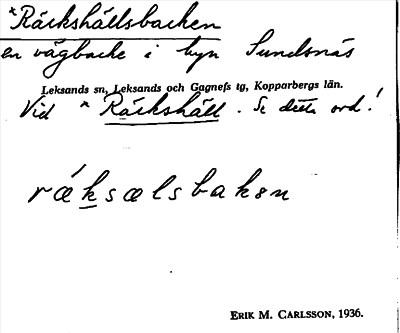 *Räckshällsbacken
en vägbacke i byn Sundsnäs
Leksands sn, Leksands och Gagnefs tg, Kopparbergs län.
Vid *Räckshäll. Se detta ord!
rǽksælsbakən
ERIK M. CARLSSON, 1936.